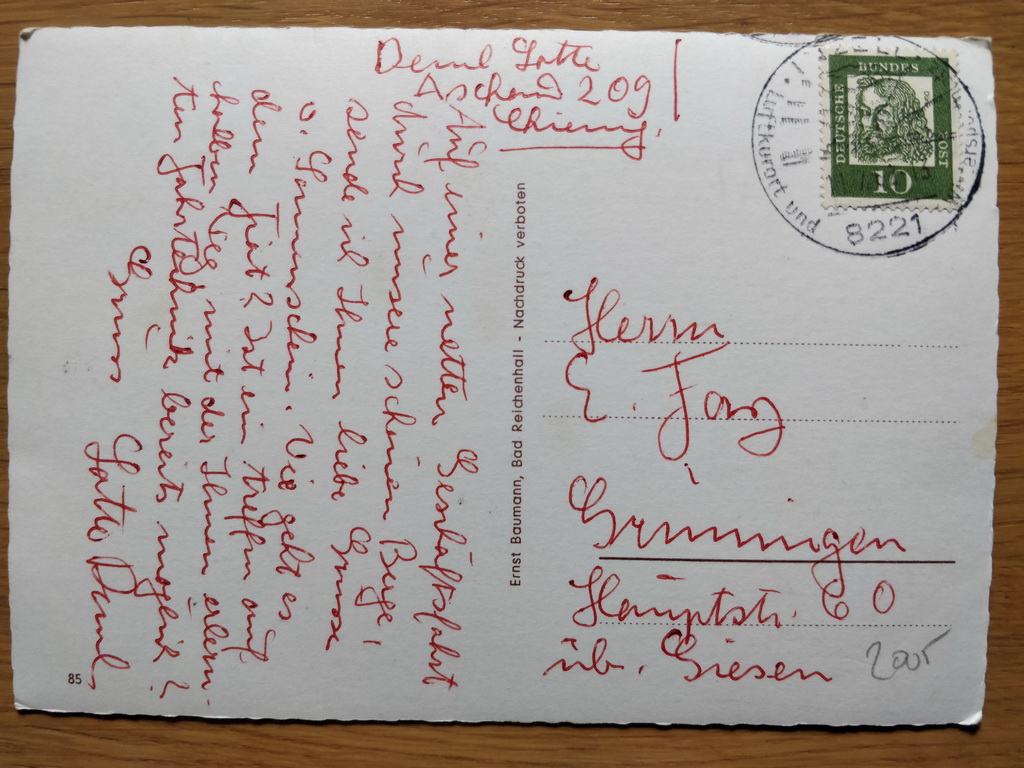 Lotte
Aschend 209
Chiemg.
Auf einer netten Geschäftsfahrt
durch unsere schönen Berge,
sende ich Ihnen liebe Grüsse
u. Sonnenschein. Wie geht es
dem Fiat? Ist ein treffen auf
halben Weg mit des Ihnen erlern-
ten Fahrtechnik bereits möglich?
Gruss
Lotte
85
Ernst Baumann, Bad Reichenhall - Nachdruck verboten
DEUTSCHE BUNDESPOST
10
Luftkurort und
8221
Herrn
E.
Grüningen
Hauptstr. 60
üb. Giesen
2005